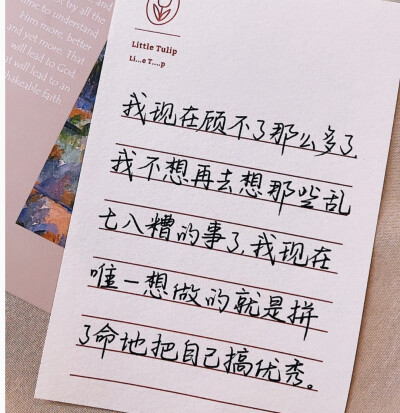 try all the
me to understand
Him more, better
and yet more. That
will lead to God
will lead to an
shakeable faith
Little Tulip
Li...e T....p
我现在顾不了那么多了
我不想再去想那些乱
七八糟的事了,我现在
唯一想做的就是拼
了命地把自己搞优秀。